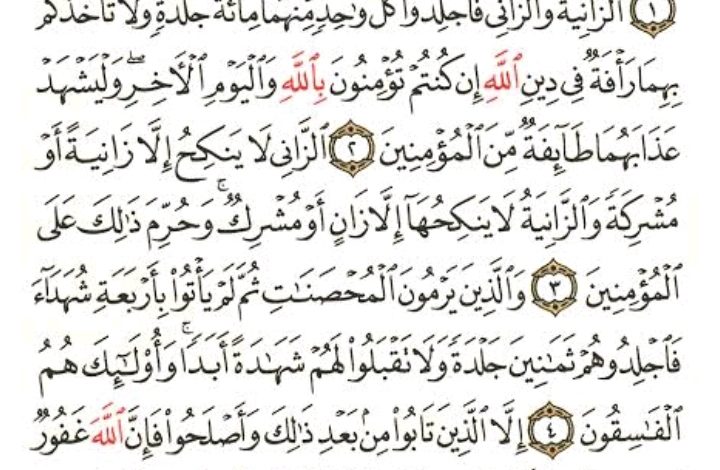 ١ ٱلزَّانِيَةُ وَٱلزَّانِي فَٱجْلِدُوا۟ كُلَّ وَٰحِدٍ مِّنْهُمَا مِا۟ئَةَ جَلْدَةٍ وَلَا تَأْخُذْكُم
بِهِمَا رَأْفَةٌ فِي دِينِ ٱللَّهِ إِن كُنتُمْ تُؤْمِنُونَ بِٱللَّهِ وَٱلْيَوْمِ ٱلْأَخِرِ ۖ وَلْيَشْهَدْ
عَذَابَهُمَا طَآئِفَةٌ مِّنَ ٱلْمُؤْمِنِينَ ٢ ٱلزَّانِي لَا يَنكِحُ إِلَّا زَانِيَةً أَوْ
مُشْرِكَةً وَٱلزَّانِيَةُ لَا يَنكِحُهَآ إِلَّا زَانٍ أَوْ مُشْرِكٌ ۚ وَحُرِّمَ ذَٰلِكَ عَلَى
ٱلْمُؤْمِنِينَ ٣ وَٱلَّذِينَ يَرْمُونَ ٱلْمُحْصَنَٰتِ ثُمَّ لَمْ يَأْتُوا۟ بِأَرْبَعَةِ شُهَدَآءَ
فَٱجْلِدُوهُمْ ثَمَٰنِينَ جَلْدَةً وَلَا تَقْبَلُوا۟ لَهُمْ شَهَٰدَةً أَبَدًا ۚ وَأُو۟لَٰٓئِكَ هُمُ
ٱلْفَٰسِقُونَ ٤ إِلَّا ٱلَّذِينَ تَابُوا۟ مِنۢ بَعْدِ ذَٰلِكَ وَأَصْلَحُوا۟ فَإِنَّ ٱللَّهَ غَفُورٌ